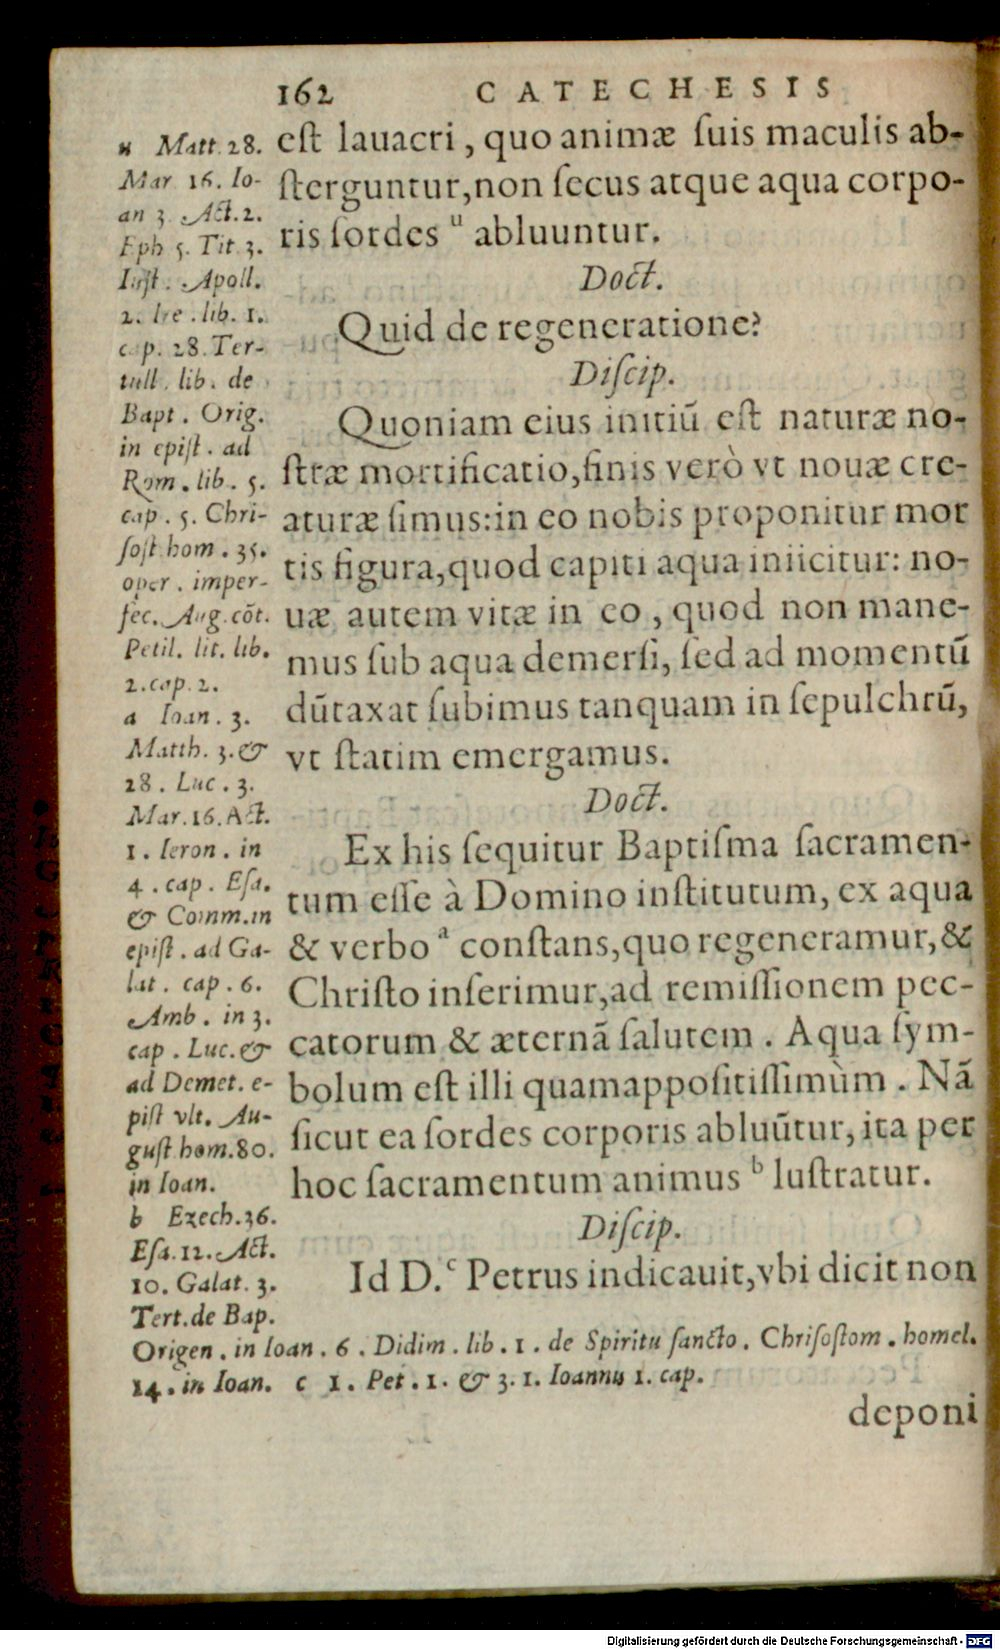 162 CATECHESIS
est lauacri, quo animæ ſuis maculis ab-
ſterguntur, non ſecus atque aqua corpo-
ris ſordes ᵘ abluuntur.
Doct.
Quid de regeneratione?
Diſcip.
Quoniam eius initiū est naturæ no-
ſtræ mortificatio, finis verò vt nouæ cre-
aturæ ſimus: in eo nobis proponitur mor
tis figura, quod capiti aqua iniicitur: no-
uæ autem vitæ in eo, quod non mane-
mus ſub aqua demerſi, ſed ad momentū
dūtaxat ſubimus tanquam in ſepulchrū,
vt ſtatim emergamus.
Doct.
Ex his ſequitur Baptiſma ſacramen-
tum eſſe à Domino inſtitutum, ex aqua
& verbo ᵃ conſtans, quo regeneramur, &
Chriſto inſerimur, ad remiſſionem pec-
catorum & æternā ſalutem. Aqua ſym-
bolum est illi quamappoſitiſſimùm. Nā
ſicut ea ſordes corporis abluūtur, ita per
hoc ſacramentum animus ᵇ luſtratur.
Diſcip.
Id D. ᶜ Petrus indicauit, vbi dicit non
u Matt. 28.
Mar 16. Io-
an 3. Act. 2.
Eph 5. Tit. 3.
Iuſt. Apoll.
2. Ire. lib. 1.
cap. 28. Ter-
tull. lib. de
Bapt. Orig.
in epiſt. ad
Rom. lib. 5.
cap. 5. Chri-
ſoſt hom. 35.
oper. imper-
fec. Aug. cōt.
Petil. lit. lib.
2. cap. 2.
a Ioan. 3.
Matth. 3. &
28. Luc. 3.
Mar. 16. Act.
1. Ieron. in
4. cap. Eſa.
& Comm. in
epiſt. ad Ga-
lat. cap. 6.
Amb. in 3.
cap. Luc. &
ad Demet. e-
piſt vlt. Au-
guſt hom. 80.
in Ioan.
b Ezech. 36.
Eſa. 12. Act.
10. Galat. 3.
Tert. de Bap.
Origen. in Ioan. 6. Didim. lib. 1. de Spiritu ſancto. Chriſoſtom. homel.
14. in Ioan. c 1. Pet. 1. & 3. 1. Ioannis 1. cap.
deponi
Digitalisierung gefördert durch die Deutsche Forschungsgemeinschaft - DFG